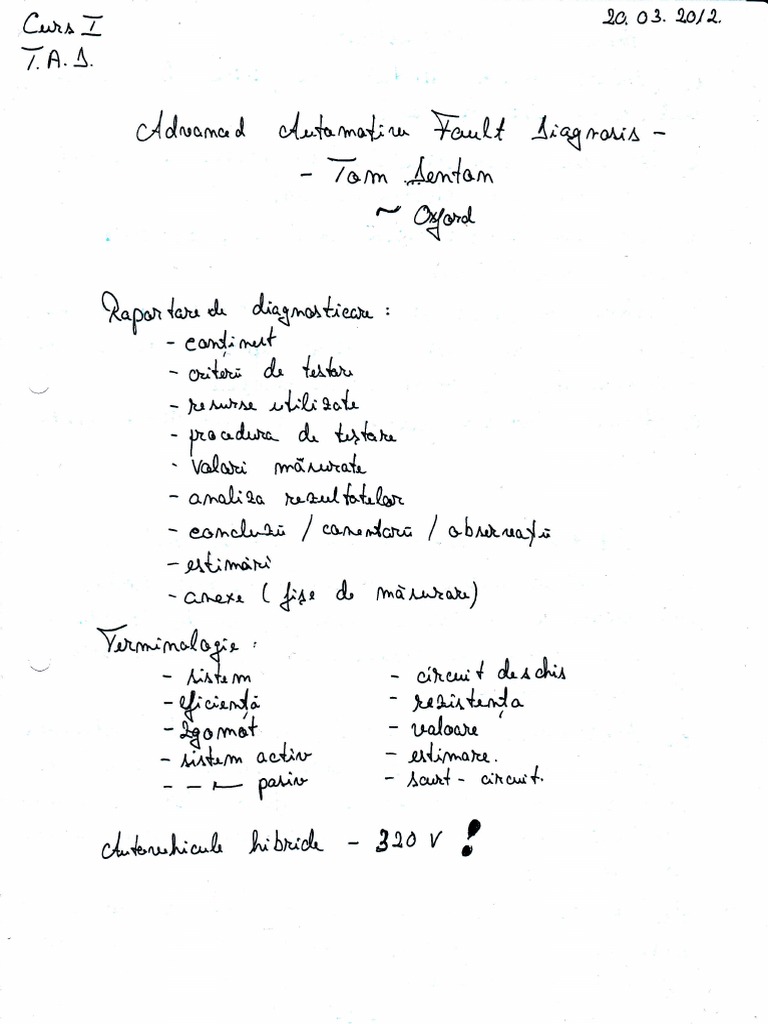 Curs I
20.03.2012.
T.A.D.
Advanced Automotive Fault Diagnosis -
- Tom Denton
~ Oxford
Raportare de diagnosticare :
- conținut
- criterii de testare
- resurse utilizate
- procedura de testare
- valori măsurate
- analiza rezultatelor
- concluzii / comentarii / observații
- estimări
- anexe ( fișe de măsurare)
Terminologie :
- sistem
- eficiență
- zgomot
- sistem activ
- - - pasiv
- circuit deschis
- rezistența
- valoare
- estimare.
- scurt - circuit.
Autovehicule hibride - 320 V !